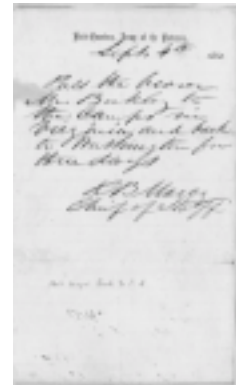 Head-Quarters, Army of the Potomac,
Sept. 4th 186
Pass the bearer
Mr. Buckley to
the camps in
Virginia and back
to Washington for
three days
R. B. Marcy
Chief of Staff